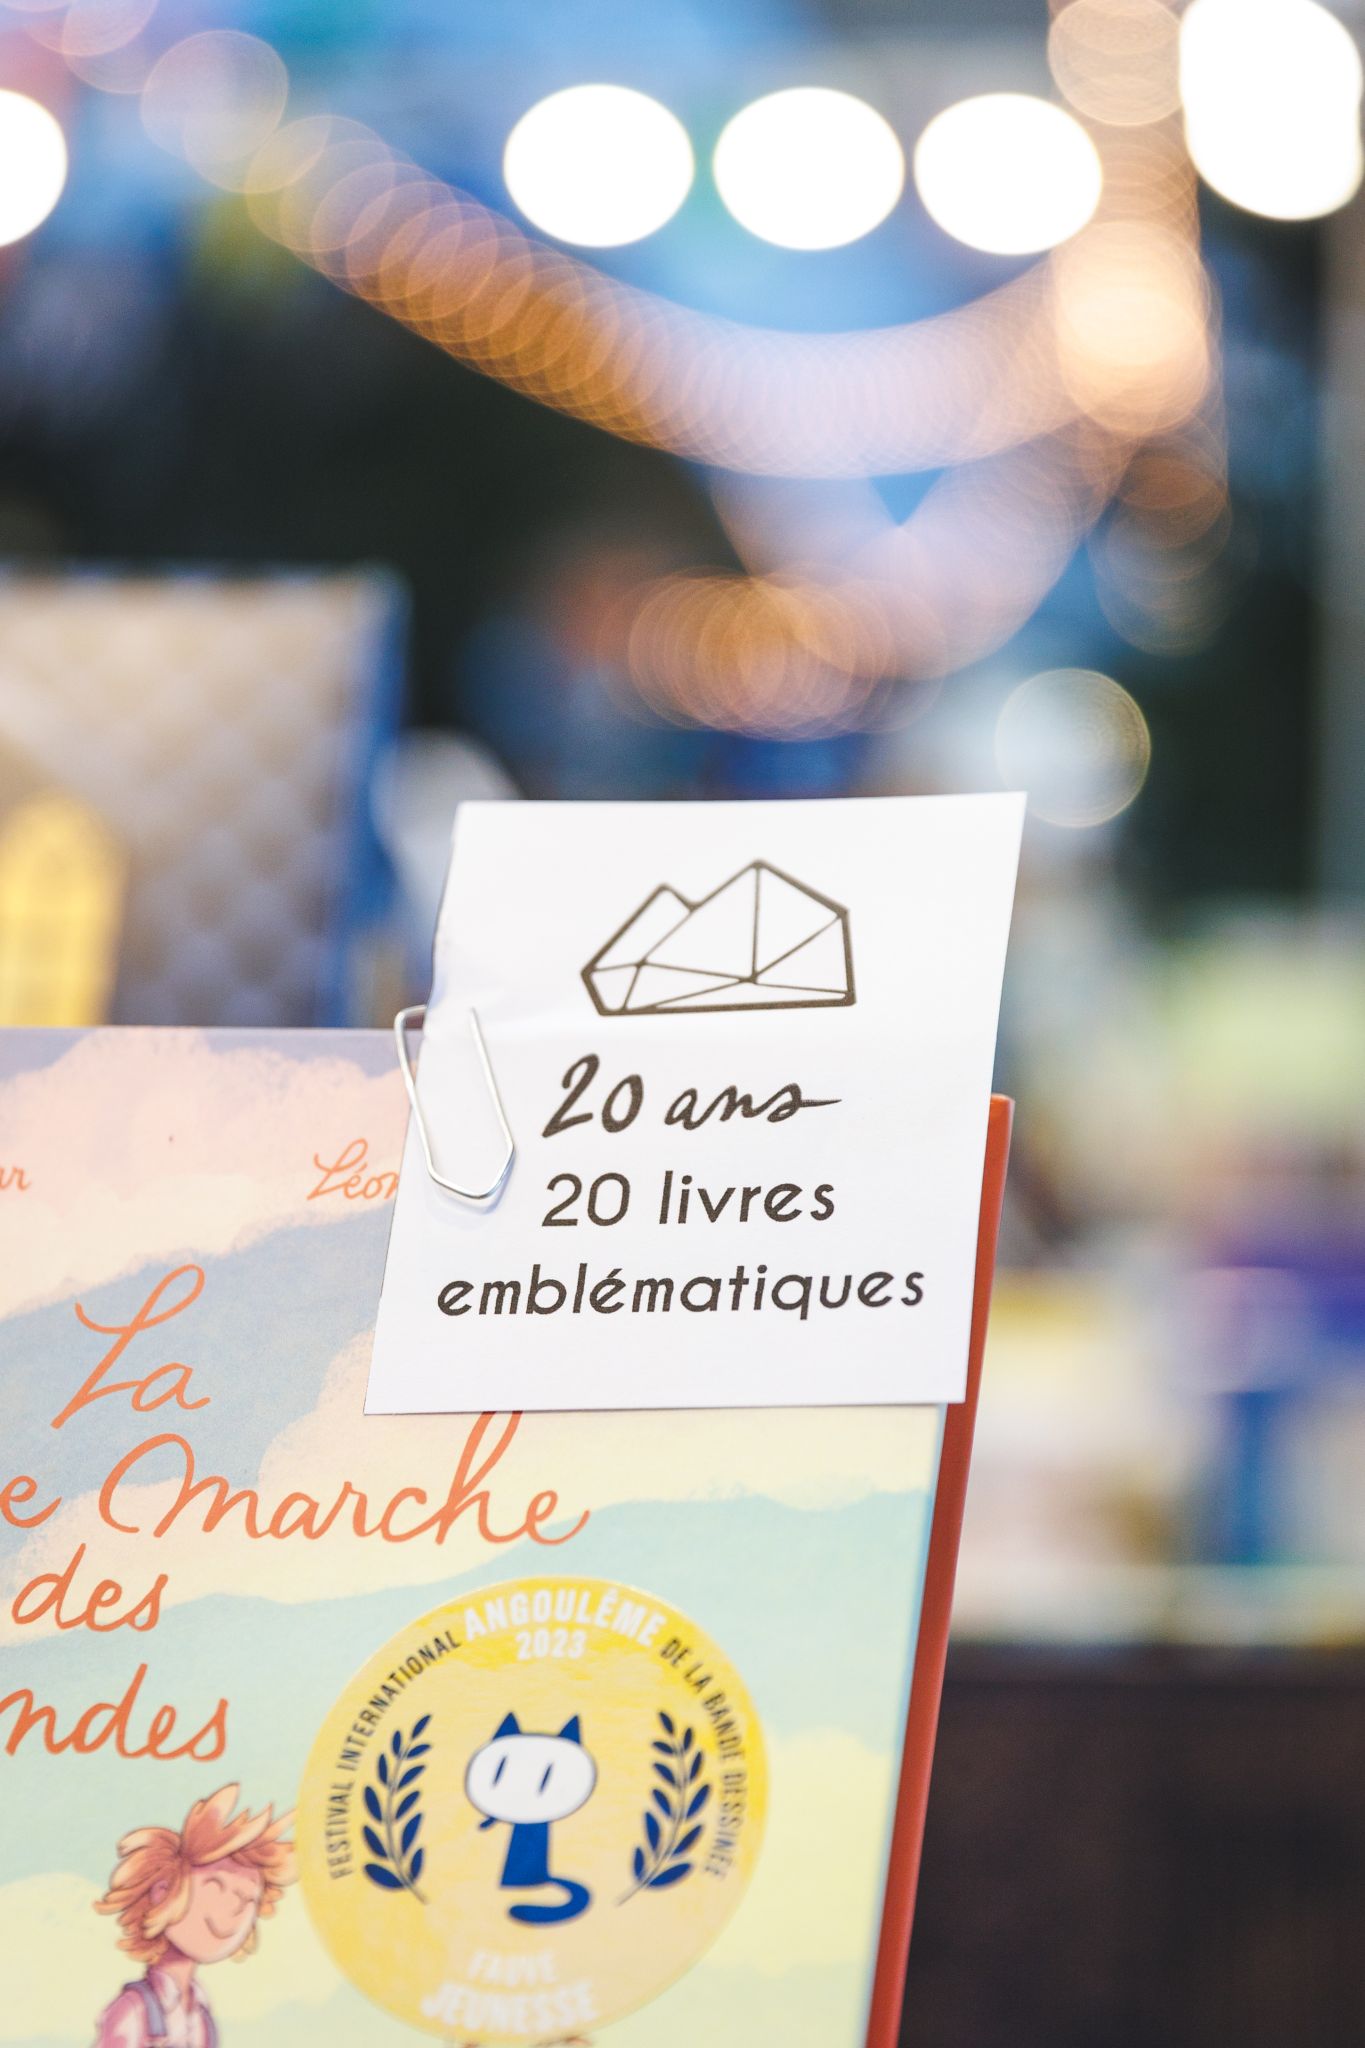 20 ans
20 livres
emblématiques
La
Marche
des
FESTIVAL INTERNATIONAL ANGOULÊME DE LA BANDE DESSINÉE
2023
FAUVE
JEUNESSE